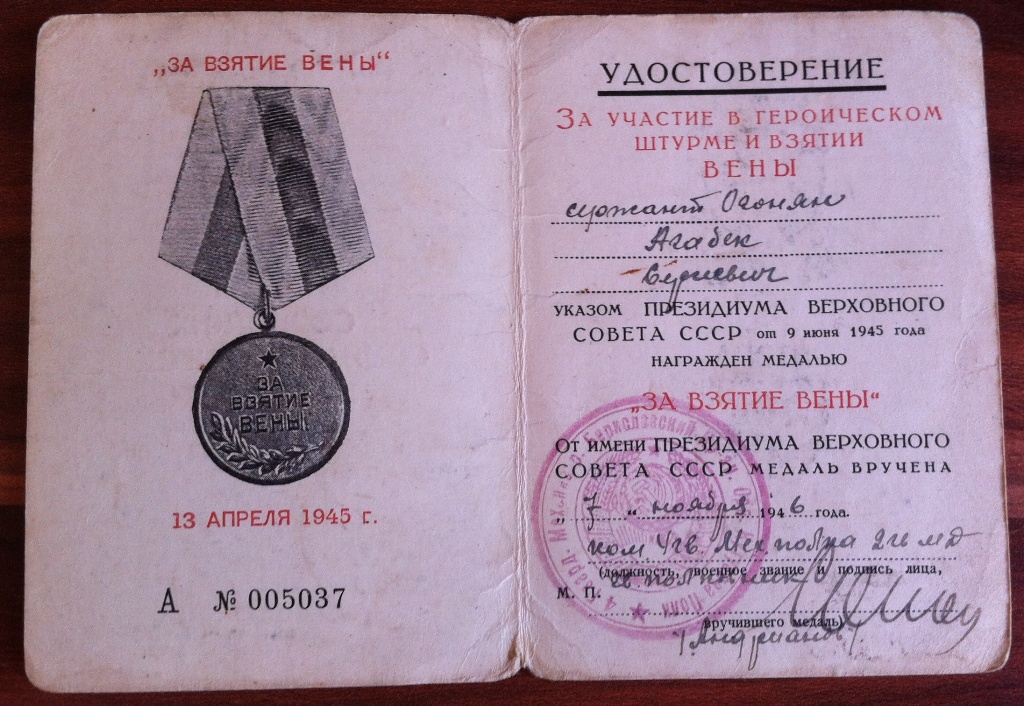 „ЗА ВЗЯТИЕ ВЕНЫ“
ЗА
ВЗЯТИЕ
ВЕНЫ
13 АПРЕЛЯ 1945 г.
А № 005037
УДОСТОВЕРЕНИЕ
За участие в героическом
штурме и взятии
ВЕНЫ
сержант Огонян
Агабек
указом ПРЕЗИДИУМА ВЕРХОВНОГО
СОВЕТА СССР от 9 июня 1945 года
награжден медалью
„ЗА ВЗЯТИЕ ВЕНЫ“
От имени ПРЕЗИДИУМА ВЕРХОВНОГО
СОВЕТА СССР медаль вручена
„7“ ноября 1946 года.
ком 4 гв. Мех полка 2 гв мд
(должность, военное звание и подпись лица,
М. П. гв полковник
вручившего медаль)